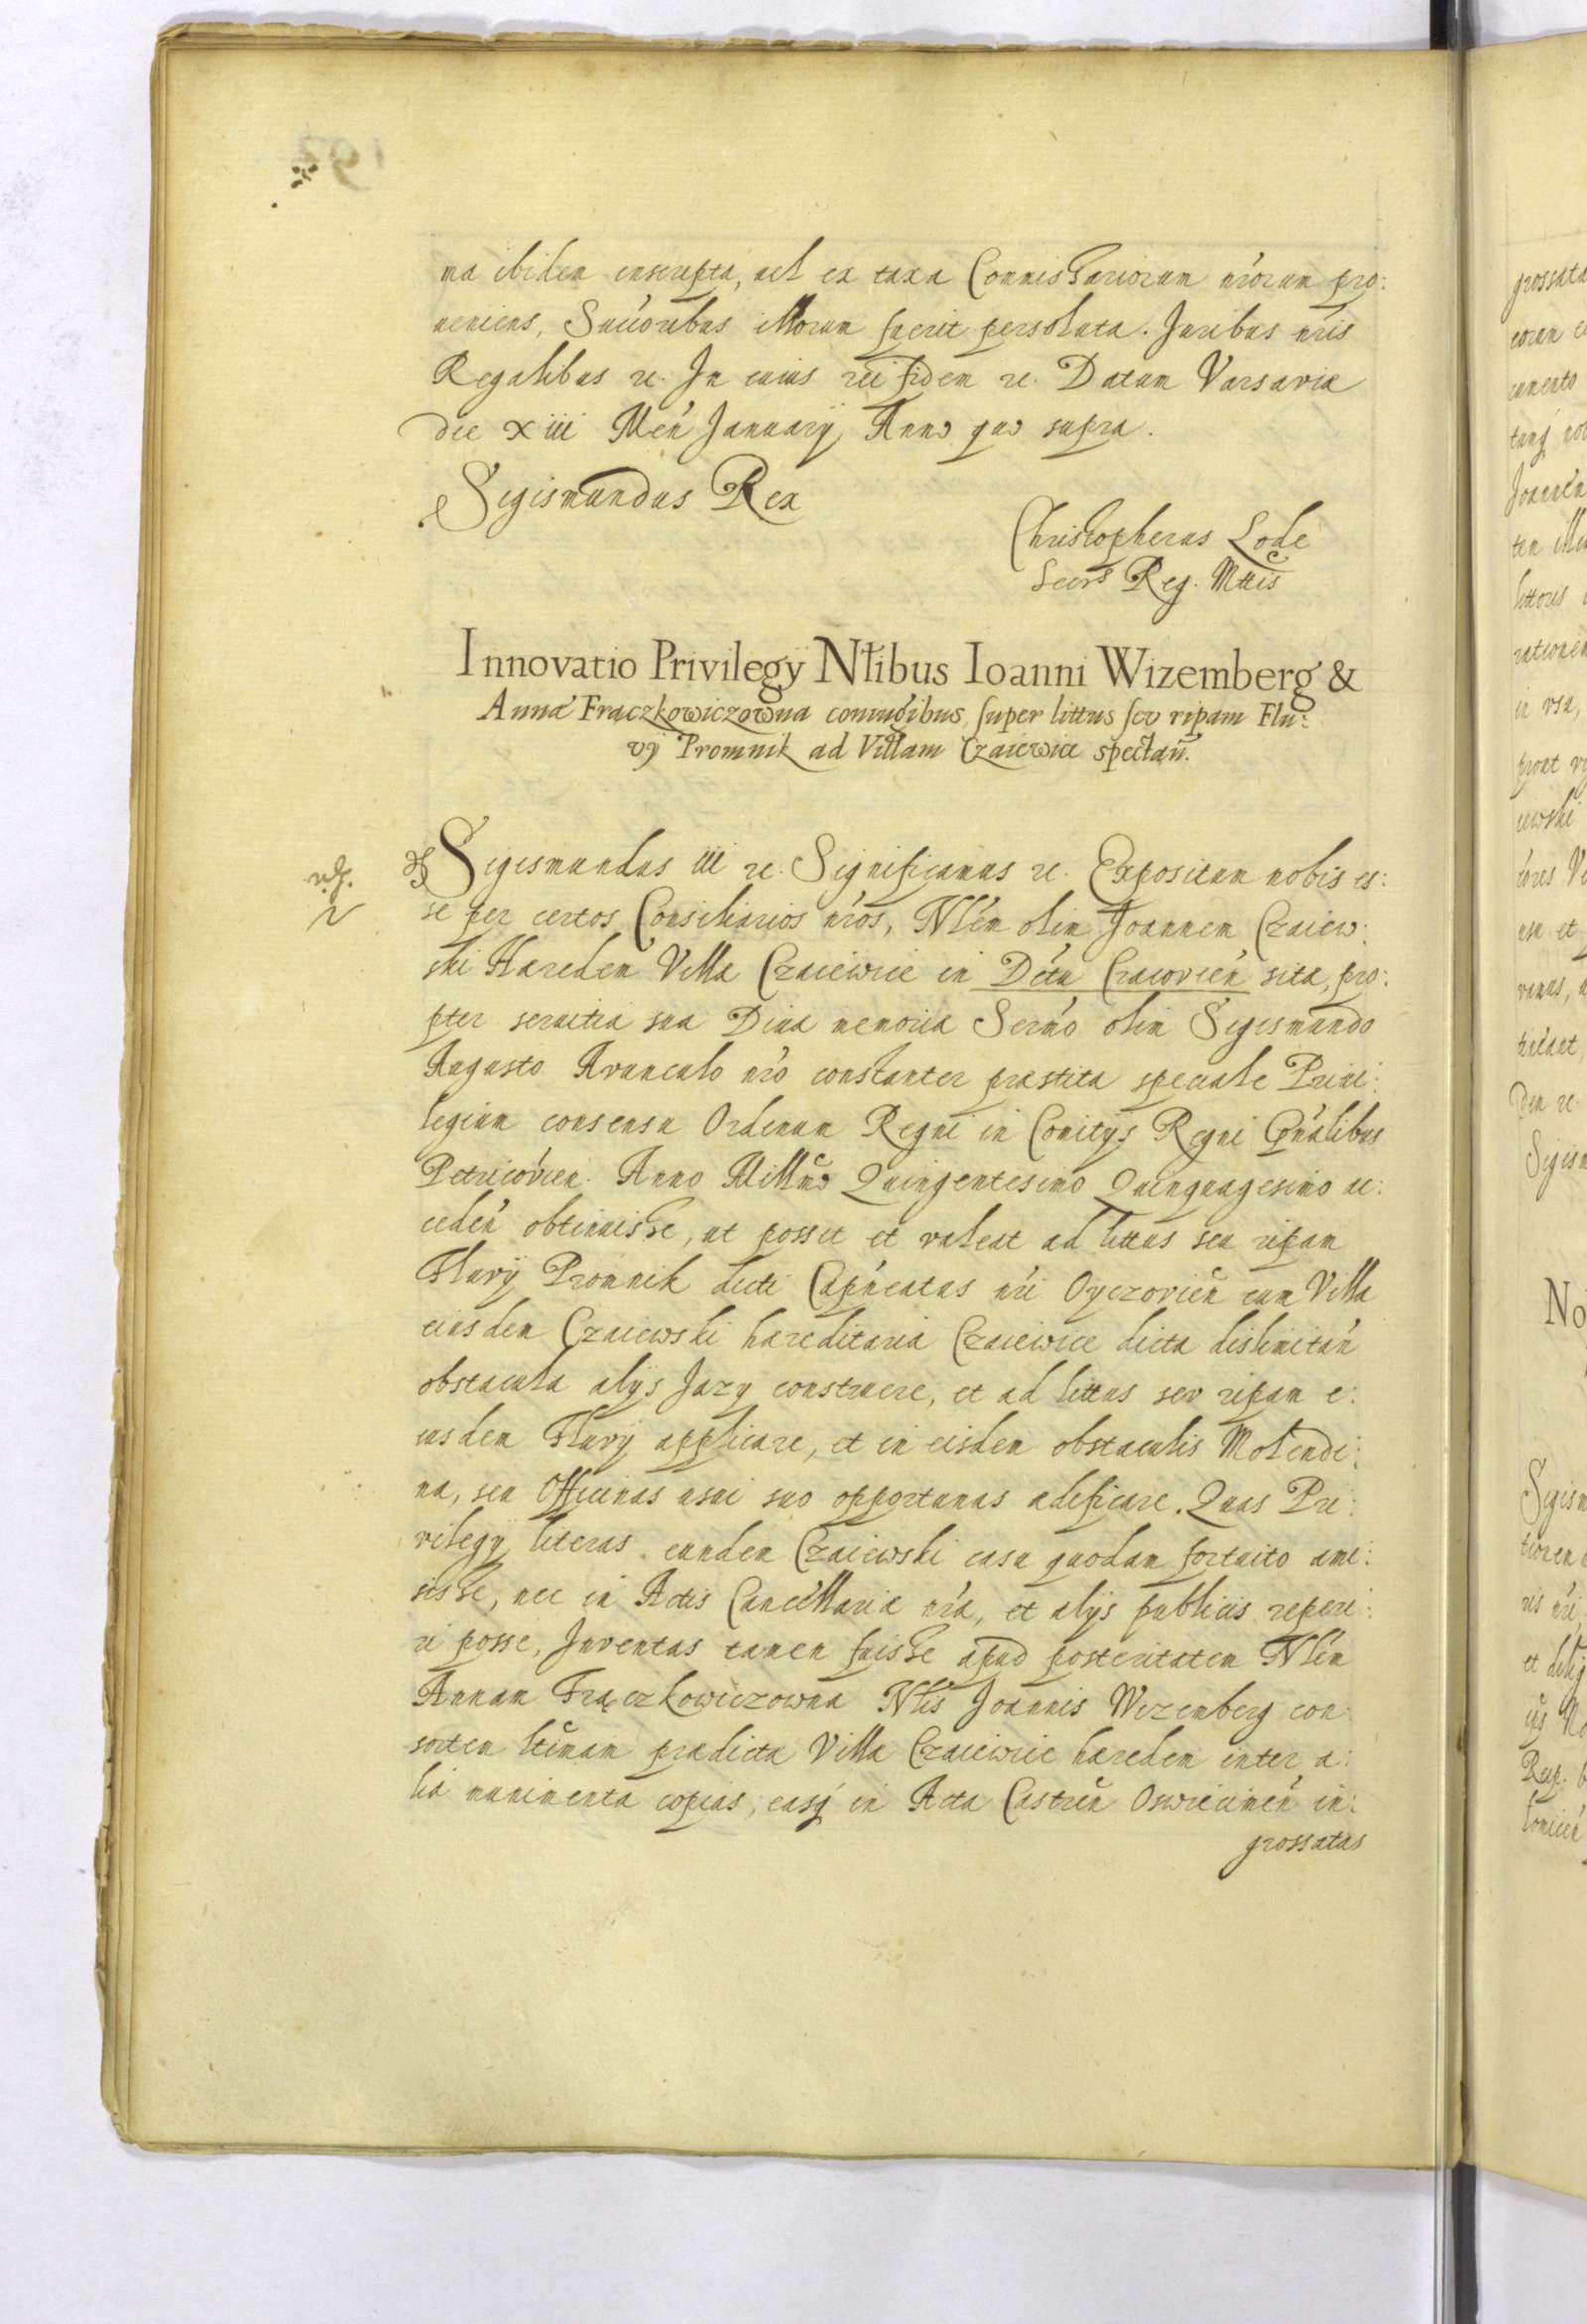 na ibidem inscripta, vel ex taxa Commissariorum nrorum pro:
ueniens, Succoribus illorum fuerit persoluta. Juribus nris
Regalibus rc. In cuius rei fidem rc. Datum Varsavia
die xiii Men January, Anno quo supra.
Sigismundus Rex
Christopherus Lode
Secrs Reg. Mttis
Innovatio Privilegÿ Nlibus Ioanni Wizemberg &
Anna Frączkowiczowna coniugibus, super littus seu ripam Flu:
vÿ Promnik ad Villam Czaiewice spectan.
Sigismundus iii rc. Significamus rc. Expositum nobis es:
se per certos Consiliarios nros, Nlem olim Joannem Czaiew:
ski Haredem Villa Czaiewice in Dctu Cracovien sita, pro:
pter seruitia sua Diua memoria Sermo olim Sigismundo
Augusto Avunculo nro constanter prastita speciale Priui:
legium consensu Ordinum Regni in Comitÿs Regni Gnalibus
Petricovien. Anno Millmo Quingentesimo Quinquagesimo ae:
ceden obtinuisse, ut posset et valeat ad littus seu ripam
Fluvÿ Promnik dicti Capneatus nri Oyczovien cum Villa
eiusdem Czaiewski hareditaria Czaiewice dicta dislimitan
obstacula alÿs Jazy construere, et ad littus seu ripam e:
iusdem Fluvÿ applicare, et in eisdem obstaculis Molendi:
na, seu Officinas usui suo opportunas adificare. Quas Pri:
vilegÿ literas eundem Czaiewski casu quodam fortuito ami:
sisse, nec in Actis Cancellaria nra, et alÿs publicis reperi:
ri posse, Inventas tamen fuisse apud posteritatem Nlem
Annam Frączkowiczowna Nlis Joannis Wizenberg con:
sortem ltimam pradicta Villa Czaiewice haredem inter a:
lia munimenta copias, easq in Acta Castren Oswiecimen in:
grossatas